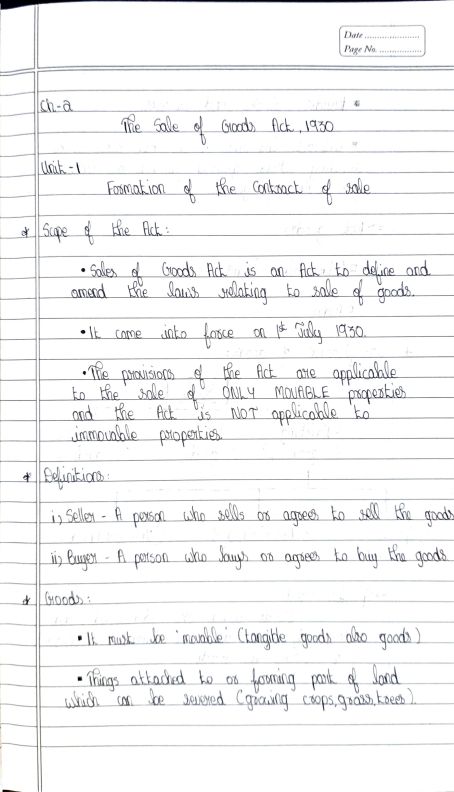 Date ....................
Page No. ................
Ch-2
The Sale of Goods Act, 1930
Unit-1
Formation of the Contract of sale
* Scope of the Act:
• Sales of Goods Act is an Act to define and
amend the laws relating to sale of goods.
• It came into force on 1st July 1930.
• The provisions of the Act are applicable
to the sale of ONLY MOVABLE properties
and the Act is NOT applicable to
immovable properties.
* Definitions:
i) Seller - A person who sells or agrees to sell the goods
ii) Buyer - A person who buys or agrees to buy the goods
* Goods:
• It must be 'movable' (tangible goods also goods)
• Things attached to or forming part of land
which can be severed (growing crops, grass, trees).